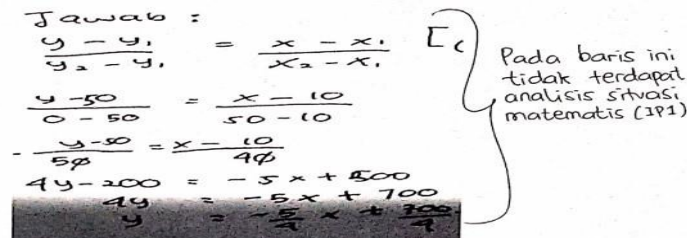 Jawab :
y - y₁ / y₂ - y₁ = x - x₁ / x₂ - x₁
y - 50 / 0 - 50 = x - 10 / 50 - 10
- y - 50 / 50 = x - 10 / 40
4y - 200 = - 5x + 500
4y = - 5x + 700
y = - 5/4 x + 700/4
Pada baris ini
tidak terdapat
analisis situasi
matematis (IP1)